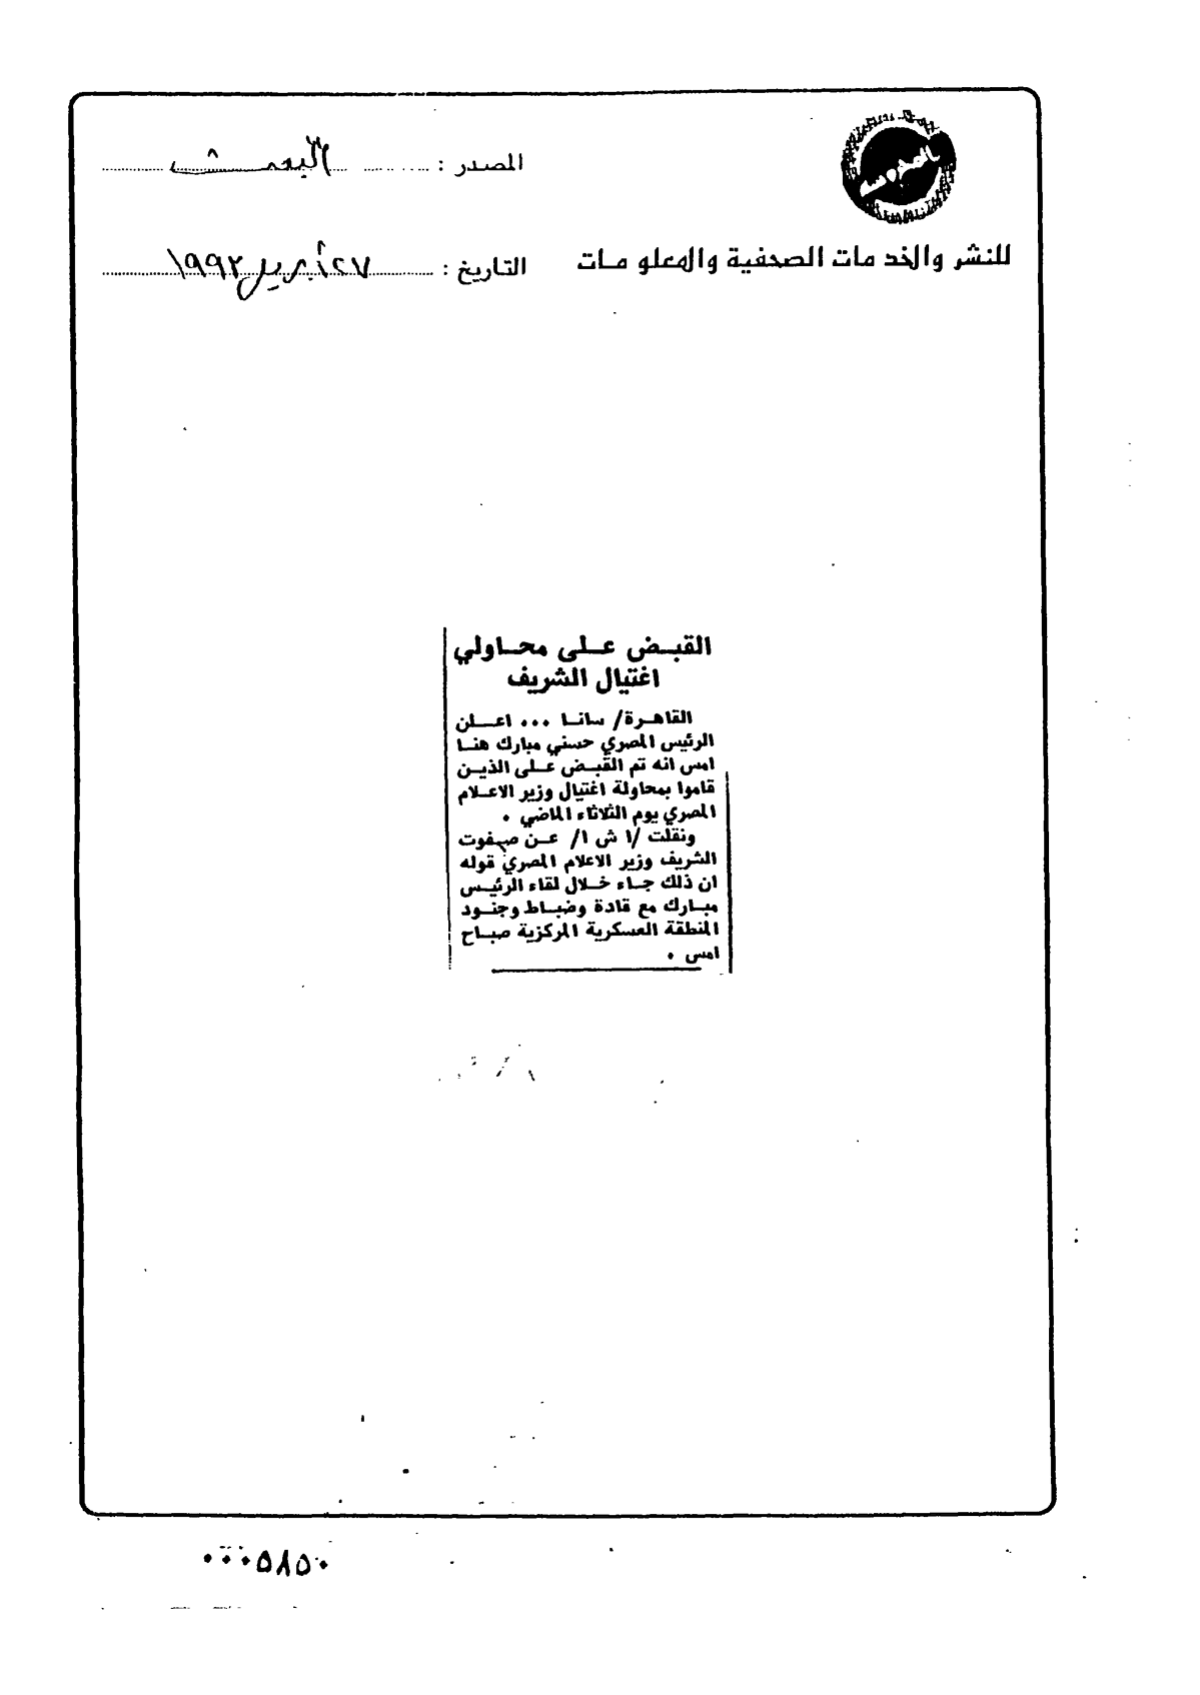 المصدر : البعث
للنشر والخدمات الصحفية والمعلومات
التاريخ : ٢٧ أبريل ١٩٩٣
القبض على محاولي
اغتيال الشريف
القاهرة/ سانا ... اعلن
الرئيس المصري حسني مبارك هنا
امس انه تم القبض على الذين
قاموا بمحاولة اغتيال وزير الاعلام
المصري يوم الثلاثاء الماضي .
ونقلت /ا ش ا/ عن صفوت
الشريف وزير الاعلام المصري قوله
ان ذلك جاء خلال لقاء الرئيس
مبارك مع قادة وضباط وجنود
المنطقة العسكرية المركزية صباح
امس .
٠٠٠٥٨٥٠